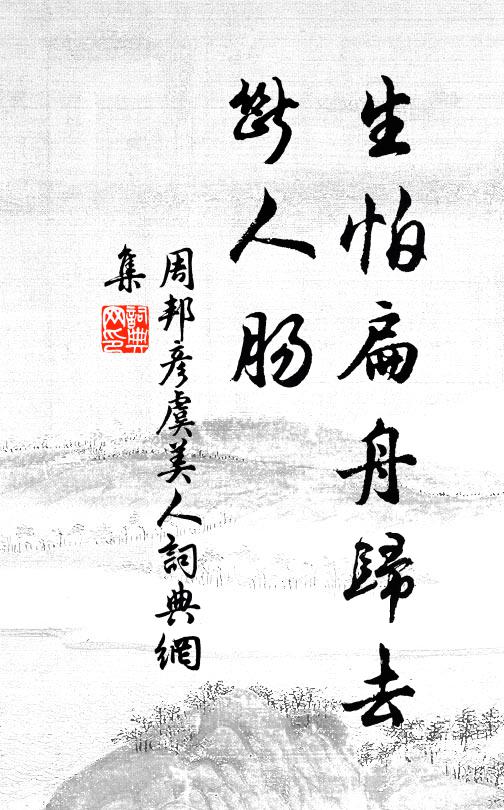 生怕扁舟歸去
斷人肠
周邦彥虞美人詞典網
集
詞典
网印